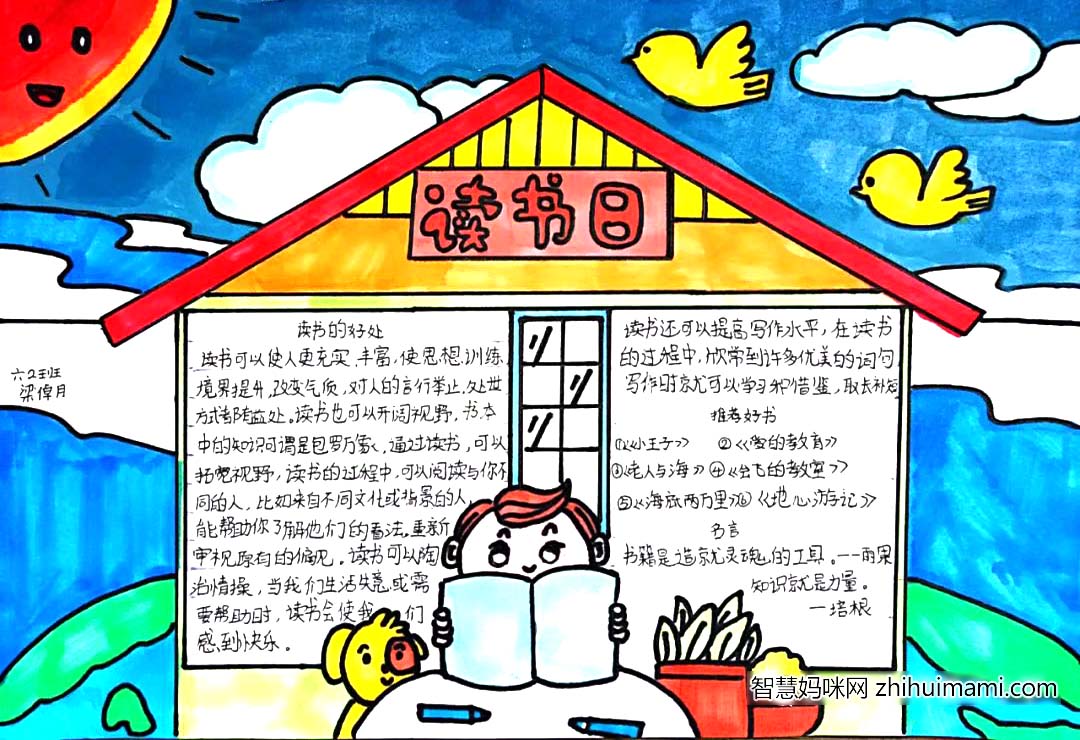 读书日
六2班
梁倬月
读书的好处
读书可以使人更充实、丰富,使思想训练
境界提升,改变气质,对人的言行举止,处世
方式都有益处。读书也可以开阔视野,书本
中的知识可谓是包罗万象,通过读书,可以
拓宽视野,读书的过程中,可以阅读与你不
同的人,比如来自不同文化或背景的人,
能帮助你了解他们的看法,重新
审视原有的偏见。读书可以陶
冶情操,当我们生活失意或需
要帮助时,读书会使我们
感到快乐。
读书还可以提高写作水平,在读书
的过程中,欣常到许多优美的词句
写作时就可以学习和借鉴,取长补短
推荐好书
①《小王子》 ②《爱的教育》
③《老人与海》④《会飞的教室》
⑤《海底两万里》⑥《地心游记》
名言
书籍是造就灵魂的工具。——雨果
知识就是力量。
—培根
智慧妈咪网 zhihuimami.com